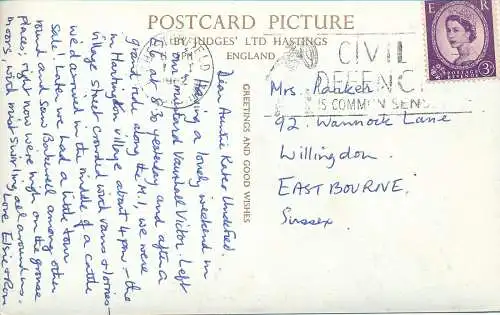 POSTCARD PICTURE
BY JUDGES' LTD HASTINGS
ENGLAND
GREETINGS AND GOOD WISHES
CIVIL
DEFENCE
IS COMMON SENSE
E R
POSTAGE REVENUE
3D
Dear Auntie Kate
Having a lovely weekend in
our mustard Vauxhall Victor. Left
E6 at 8.30 yesterday and after a
grand ride along the M.1, we were
in Hartington village about 4pm - the
village street crowded with vans & lorries -
we'd arrived in the middle of a cattle
sale! Later we had a little tour
round and saw Bakewell among other
places, right now we're high on the grouse
moors, wind mist swirling all around us.
Love Elsie & Ron
Mrs.
92. Wannock Lane
Willingdon.
EASTBOURNE.
Sussex.